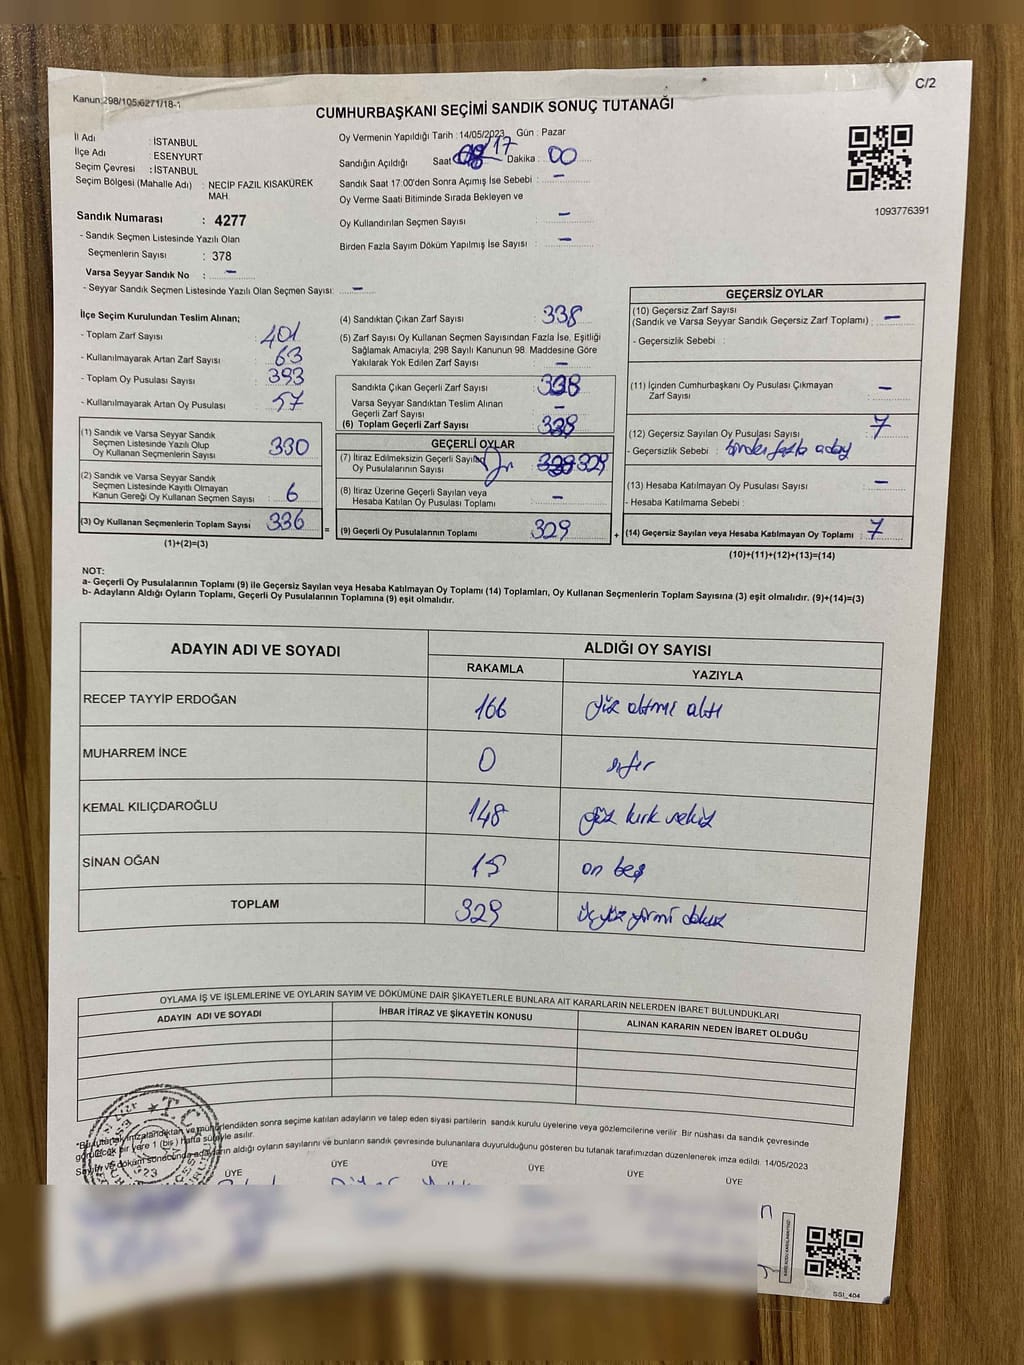 C/2
Kanun;298/105;6271/18-1
CUMHURBAŞKANI SEÇİMİ SANDIK SONUÇ TUTANAĞI
İl Adı : İSTANBUL
İlçe Adı : ESENYURT
Seçim Çevresi : İSTANBUL
Seçim Bölgesi (Mahalle Adı) : NECİP FAZIL KISAKÜREK
MAH.
Sandık Numarası : 4277
- Sandık Seçmen Listesinde Yazılı Olan
Seçmenlerin Sayısı : 378
Varsa Seyyar Sandık No : -
- Seyyar Sandık Seçmen Listesinde Yazılı Olan Seçmen Sayısı: -
Oy Vermenin Yapıldığı Tarih : 14/05/2023 Gün : Pazar
Sandığın Açıldığı Saat 17 Dakika : 00
Sandık Saat 17:00'den Sonra Açımış İse Sebebi : -
Oy Verme Saati Bitiminde Sırada Bekleyen ve
Oy Kullandırılan Seçmen Sayısı : -
Birden Fazla Sayım Döküm Yapılmış İse Sayısı : -
1093776391
İlçe Seçim Kurulundan Teslim Alınan;
- Toplam Zarf Sayısı : 401
- Kullanılmayarak Artan Zarf Sayısı : 63
- Toplam Oy Pusulası Sayısı : 393
- Kullanılmayarak Artan Oy Pusulası : 57
(1) Sandık ve Varsa Seyyar Sandık
Seçmen Listesinde Yazılı Olup
Oy Kullanan Seçmenlerin Sayısı : 330
(2) Sandık ve Varsa Seyyar Sandık
Seçmen Listesinde Kayıtlı Olmayan
Kanun Gereği Oy Kullanan Seçmen Sayısı : 6
(3) Oy Kullanan Seçmenlerin Toplam Sayısı : 336
(1)+(2)=(3)
=
(4) Sandıktan Çıkan Zarf Sayısı : 338
(5) Zarf Sayısı Oy Kullanan Seçmen Sayısından Fazla İse, Eşitliği
Sağlamak Amacıyla, 298 Sayılı Kanunun 98. Maddesine Göre
Yakılarak Yok Edilen Zarf Sayısı : -
Sandıkta Çıkan Geçerli Zarf Sayısı : 338
Varsa Seyyar Sandıktan Teslim Alınan
Geçerli Zarf Sayısı : -
(6) Toplam Geçerli Zarf Sayısı :
GEÇERLİ OYLAR
(7) İtiraz Edilmeksizin Geçerli Sayılan
Oy Pusulalarının Sayısı : 329
(8) İtiraz Üzerine Geçerli Sayılan veya
Hesaba Katılan Oy Pusulası Toplamı : -
(9) Geçerli Oy Pusulalarının Toplamı : 329
+
GEÇERSİZ OYLAR
(10) Geçersiz Zarf Sayısı
(Sandık ve Varsa Seyyar Sandık Geçersiz Zarf Toplamı) : -
- Geçersizlik Sebebi :
(11) İçinden Cumhurbaşkanı Oy Pusulası Çıkmayan
Zarf Sayısı : -
(12) Geçersiz Sayılan Oy Pusulası Sayısı : 7
- Geçersizlik Sebebi : birden fazla aday
(13) Hesaba Katılmayan Oy Pusulası Sayısı : -
- Hesaba Katılmama Sebebi :
(14) Geçersiz Sayılan veya Hesaba Katılmayan Oy Toplamı : 7
(10)+(11)+(12)+(13)=(14)
NOT:
a- Geçerli Oy Pusulalarının Toplamı (9) ile Geçersiz Sayılan veya Hesaba Katılmayan Oy Toplamı (14) Toplamları, Oy Kullanan Seçmenlerin Toplam Sayısına (3) eşit olmalıdır. (9)+(14)=(3)
b- Adayların Aldığı Oyların Toplamı, Geçerli Oy Pusulalarının Toplamına (9) eşit olmalıdır.
ADAYIN ADI VE SOYADI ALDIĞI OY SAYISI
RAKAMLA YAZIYLA
RECEP TAYYİP ERDOĞAN 166 yüz altmış altı
MUHARREM İNCE 0 sıfır
KEMAL KILIÇDAROĞLU 148 yüz kırk sekiz
SİNAN OĞAN 15 on beş
TOPLAM 329 üçyüz yirmi dokuz
OYLAMA İŞ VE İŞLEMLERİNE VE OYLARIN SAYIM VE DÖKÜMÜNE DAİR ŞİKAYETLERLE BUNLARA AİT KARARLARIN NELERDEN İBARET BULUNDUKLARI
ADAYIN ADI VE SOYADI İHBAR İTİRAZ VE ŞİKAYETİN KONUSU ALINAN KARARIN NEDEN İBARET OLDUĞU
*Bu tutanak imzalandıktan ve mühürlendikten sonra seçime katılan adayların ve talep eden siyasi partilerin sandık kurulu üyelerine veya gözlemcilerine verilir. Bir nüshası da sandık çevresinde
görülecek bir yere 1 (bir) hafta süreyle asılır.
Sayım ve döküm sonucunda adayların aldığı oyların sayılarını ve bunların sandık çevresinde bulunanlara duyurulduğunu gösteren bu tutanak tarafımızdan düzenlenerek imza edildi. 14/05/2023
ÜYE ÜYE ÜYE ÜYE ÜYE ÜYE
T.C.
SSI_404